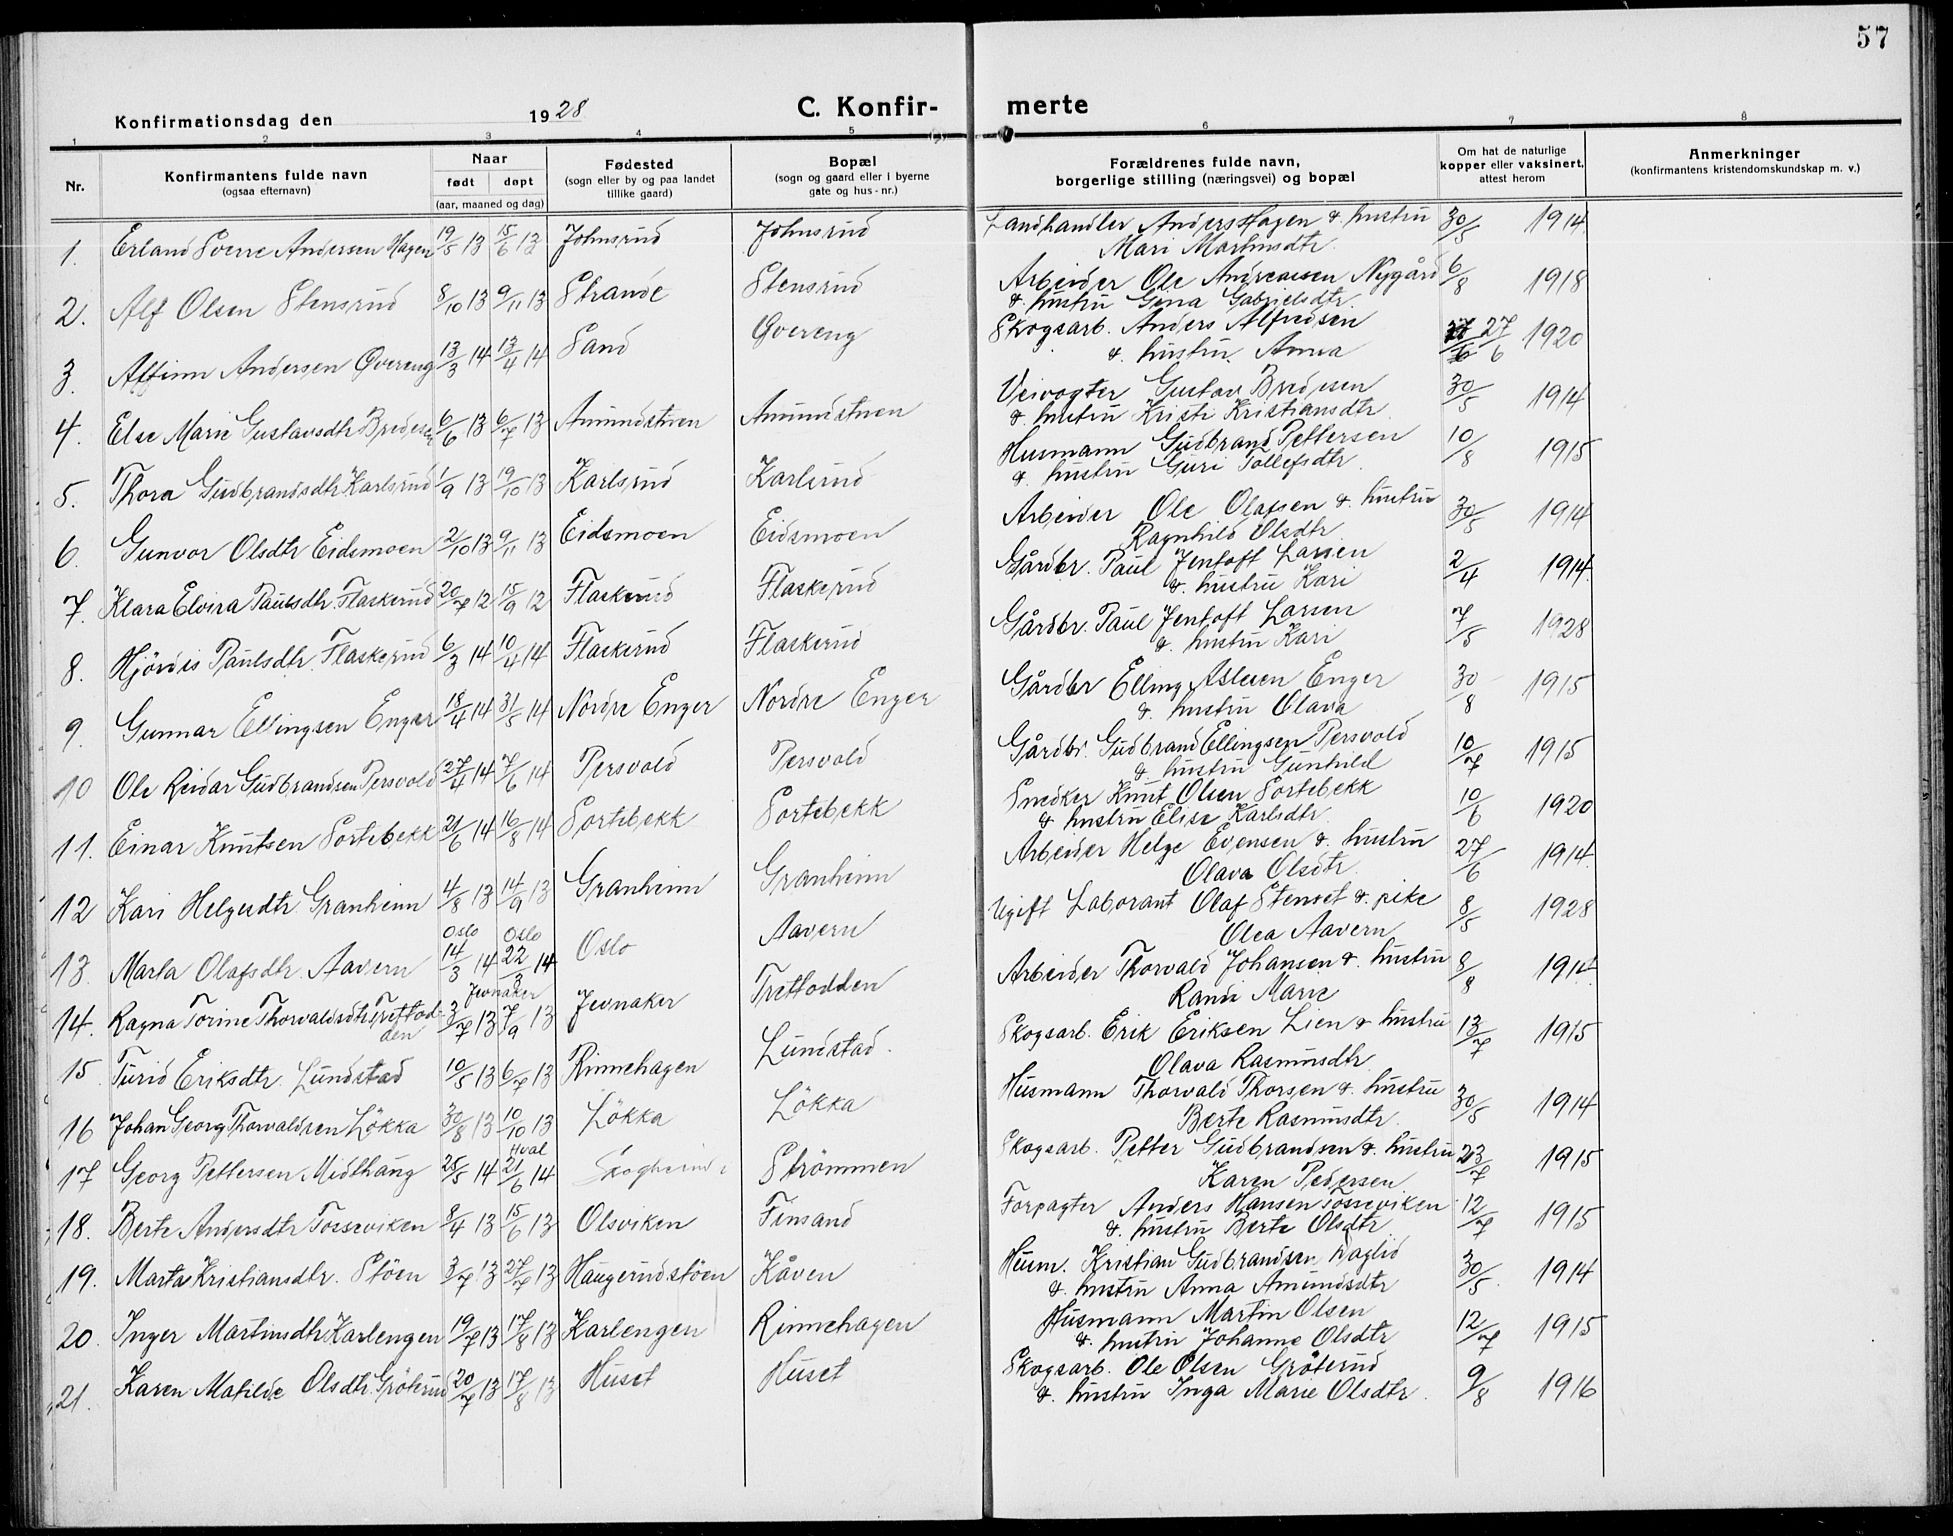 57
Konfirmationsdag den 1928 C. Konfir- merte
1 2 3 4 5 6 7 8
Nr. Konfirmantens fulde navn (ogsaa efternavn) Naar født døpt (aar, maaned og dag) Fødested (sogn eller by og paa landet tillike gaard) Bopæl (sogn og gaard eller i byerne gate og hus-nr.) Forældrenes fulde navn, borgerlige stilling (næringsvei) og bopæl Om hat de naturlige kopper eller vaksinert, attest herom Anmerkninger (konfirmantens kristendomskundskap m. v.)
1. Erland Sverre Andersen Hagen 19/5 13 15/6 13 Johnsrud Johnsrud Landhandler Anders Hagen & hustru 30/5 1914
Mari Martinsdtr.
2. Alf Olsen Stensrud 8/10 13 9/11 13 Strande Stensrud Arbeider Ole Andreasen Nygård 6/8 1918
& hustru Gina Gabrielsdtr.
3. Alfinn Andersen Øvereng 13/3 14 13/4 14 Sand Øvereng Skogsarb. Anders Alfredsen 27/6 1920
& hustru Anna
4. Else Marie Gustavsdtr. Bredesen 6/6 13 6/7 13 Amundstuen Amundstuen Veivogter Gustav Bredesen 30/5 1914
& hustru Kristi Kristiansdtr.
5. Thora Gudbrandsdtr. Karlsrud 1/9 13 19/10 13 Karlsrud Karlsrud Husmann Gudbrand Pettersen 10/8 1915
& hustru Guri Tollefsdtr.
6. Gunvor Olsdtr. Eidsmoen 2/10 13 9/11 13 Eidsmoen Eidsmoen Arbeider Ole Olafsen & hustru 30/5 1914
Ragnhild Olsdtr.
7. Klara Elvira Paulsdtr. Flaskerud 20/7 12 15/9 12 Flaskerud Flaskerud Gårdbr. Paul Jentoft Larsen 2/4 1914
& hustru Kari
8. Hjördis Paulsdtr. Flaskerud 6/3 14 10/4 14 Flaskerud Flaskerud Gårdbr. Paul Jentoft Larsen 7/5 1928
& hustru Kari
9. Gunnar Ellingsen Enger 18/4 14 31/5 14 Nordre Enger Nordre Enger Gårdbr Elling Aslesen Enger 30/8 1915
& hustru Olava
10 Ole Reidar Gudbrandsen Persvold 27/4 14 7/6 14 Persvold Persvold Gårdbr. Gudbrand Ellingsen Persvold 10/7 1915
& hustru Gunhild
11. Einar Knutsen Sortebekk 21/6 14 16/8 14 Sortebekk Sortebekk Snedker Knut Olsen Sortebekk 10/6 1920
& hustru Elise Karlsdtr.
12 Kari Helgesdtr. Granheim 4/8 13 14/9 13 Granheim Granheim Arbeider Helge Evensen & hustru 27/6 1914
Olava Olsdtr.
Oslo Oslo
13. Marta Olafsdtr. Aavern 14/3 14 22/3 14 Oslo Aavern Ugift Laborant Olaf Stenset & pike 8/5 1928
Olea Aavern
Jevnaker
14. Ragna Torine Thorvaldsdtr. Trettod- 3/7 13 7/9 13 Jevnaker Trettodden Arbeider Thorvald Johansen & hustru 8/8 1914
den Randi Marie
15. Turid Eriksdtr. Lundstad 10/5 13 6/7 13 Rinnehagen Lundstad. Skogsarb. Erik Eriksen Lien & hustru 13/7 1915
Olava Rasmusdtr.
16 Johan Georg Thorvaldsen Lökka 30/8 13 10/10 13 Lökka Lökka Husmann Thorvald Thorsen & hustru 30/5 1914
Berte Rasmusdtr.
Hval
17 Georg Pettersen Midthaug 25/5 14 21/6 14 Strömmen Skogsarb. Petter Gudbrandsen & hustru 23/7 1915
Karen Pedersen
18. Berte Andersdtr. Tosseviken 8/4 13 15/6 13 Olsviken Finsand Forpagter Anders Hansen Tosseviken 12/7 1915
& hustru Berte Olsdtr.
19. Marta Kristiansdtr. Stöen 3/7 13 27/7 13 Haugerudstöen Kåven Husm. Kristian Gudbrandsen Daglid 30/5 1914
& hustru Anna Amundsdtr
20. Inger Martinsdtr. Karlengen 19/7 13 17/8 13 Karlengen Rinnehagen Husmann Martin Olsen 12/7 1915
& hustru Johanne Olsdtr
21. Karen Matilde Olsdtr. Gröterud 20/7 13 17/8 13 Huset Huset Skogsarb. Ole Olsen Gröterud 9/8 1916
& hustru Inga Marie Olsdtr.